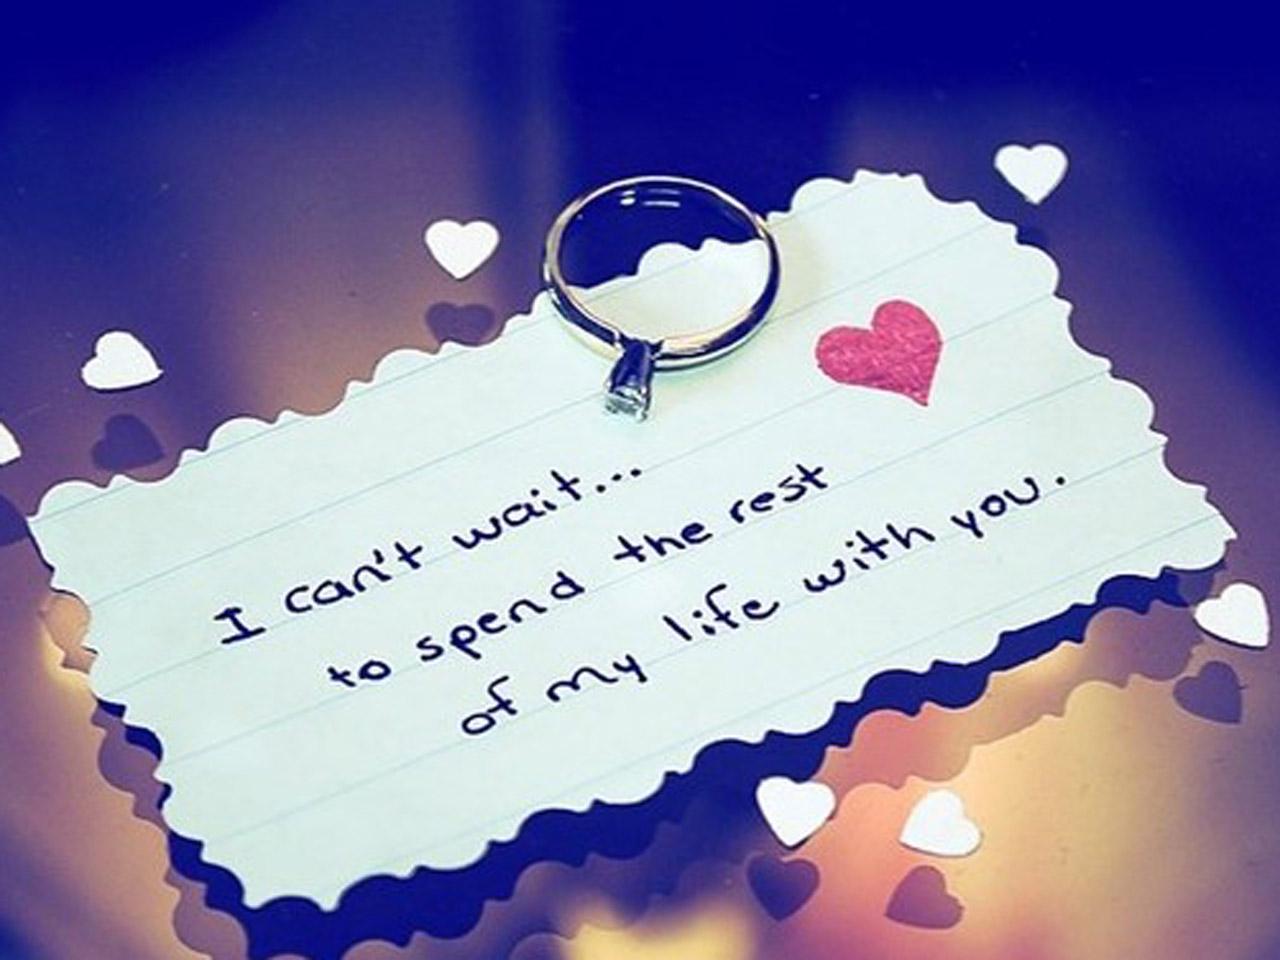 I can't wait...
to spend the rest
of my life with you.